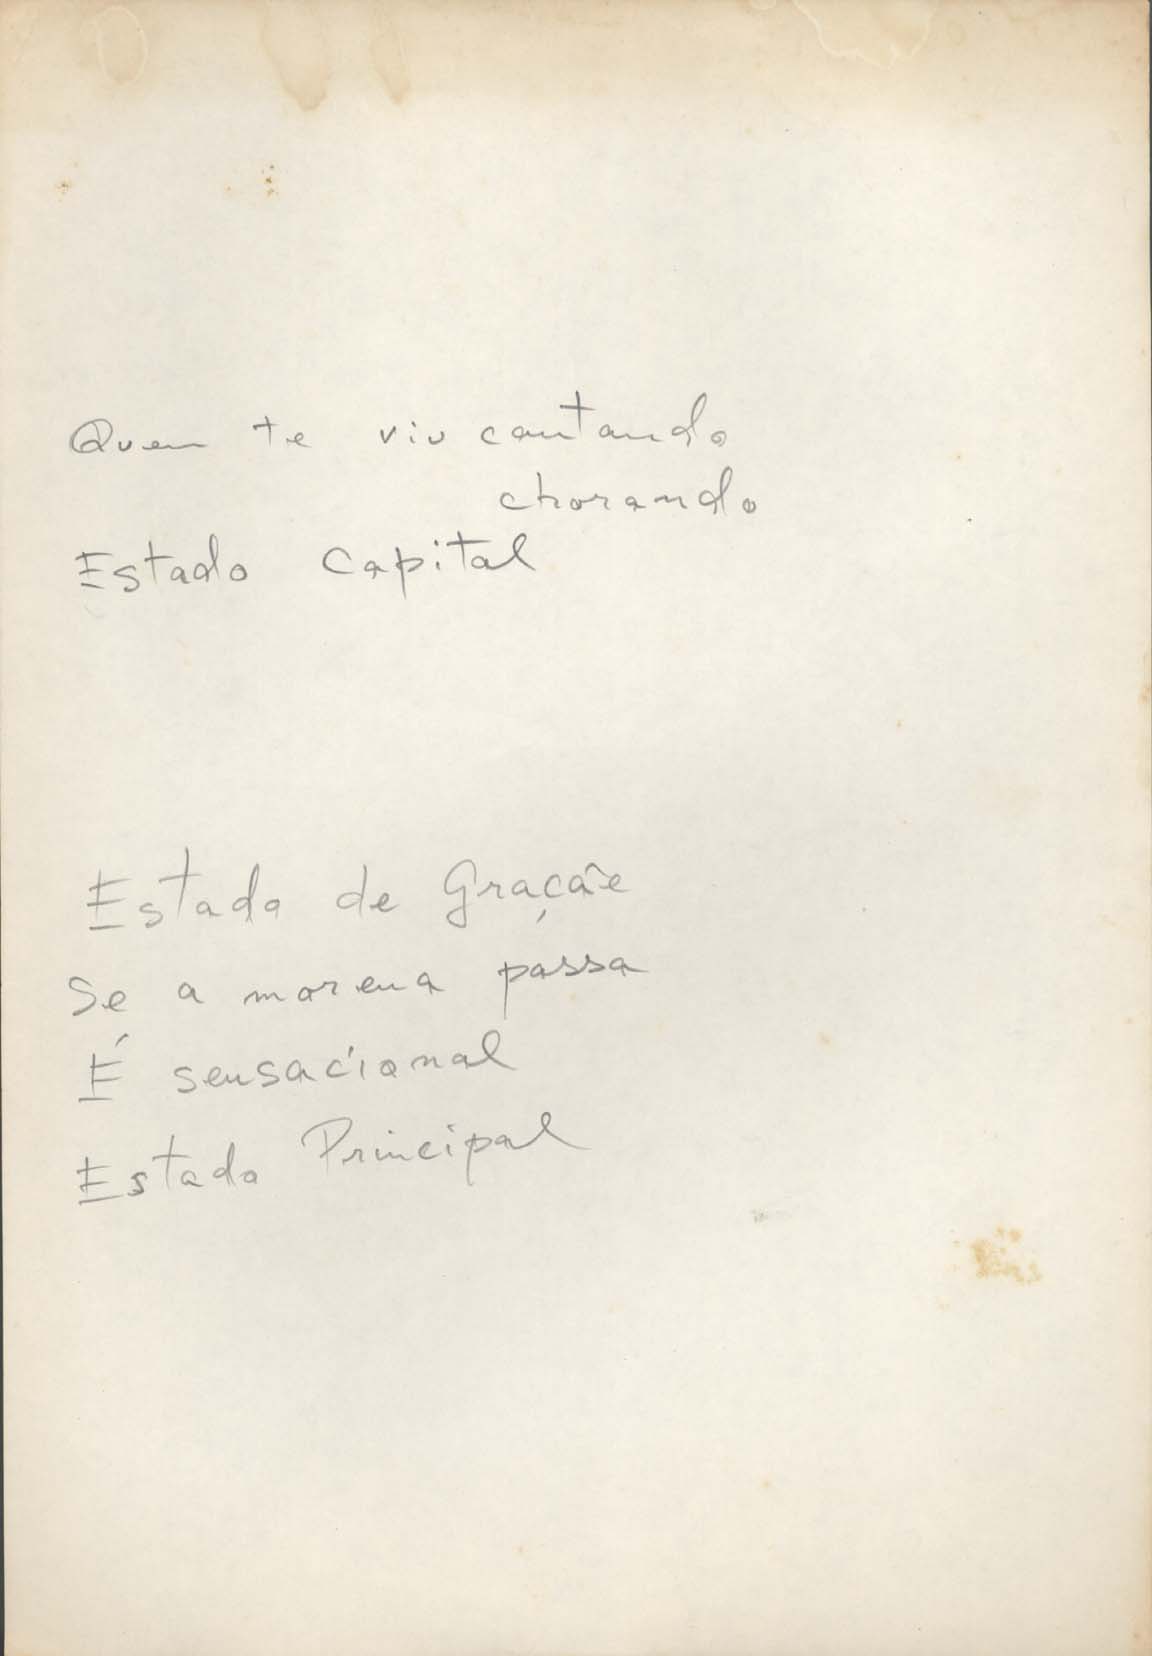 Quem te viu cantando
chorando
Estado Capital
Estado de Graçãe
Se a morena passa
É sensacional
Estado Principal